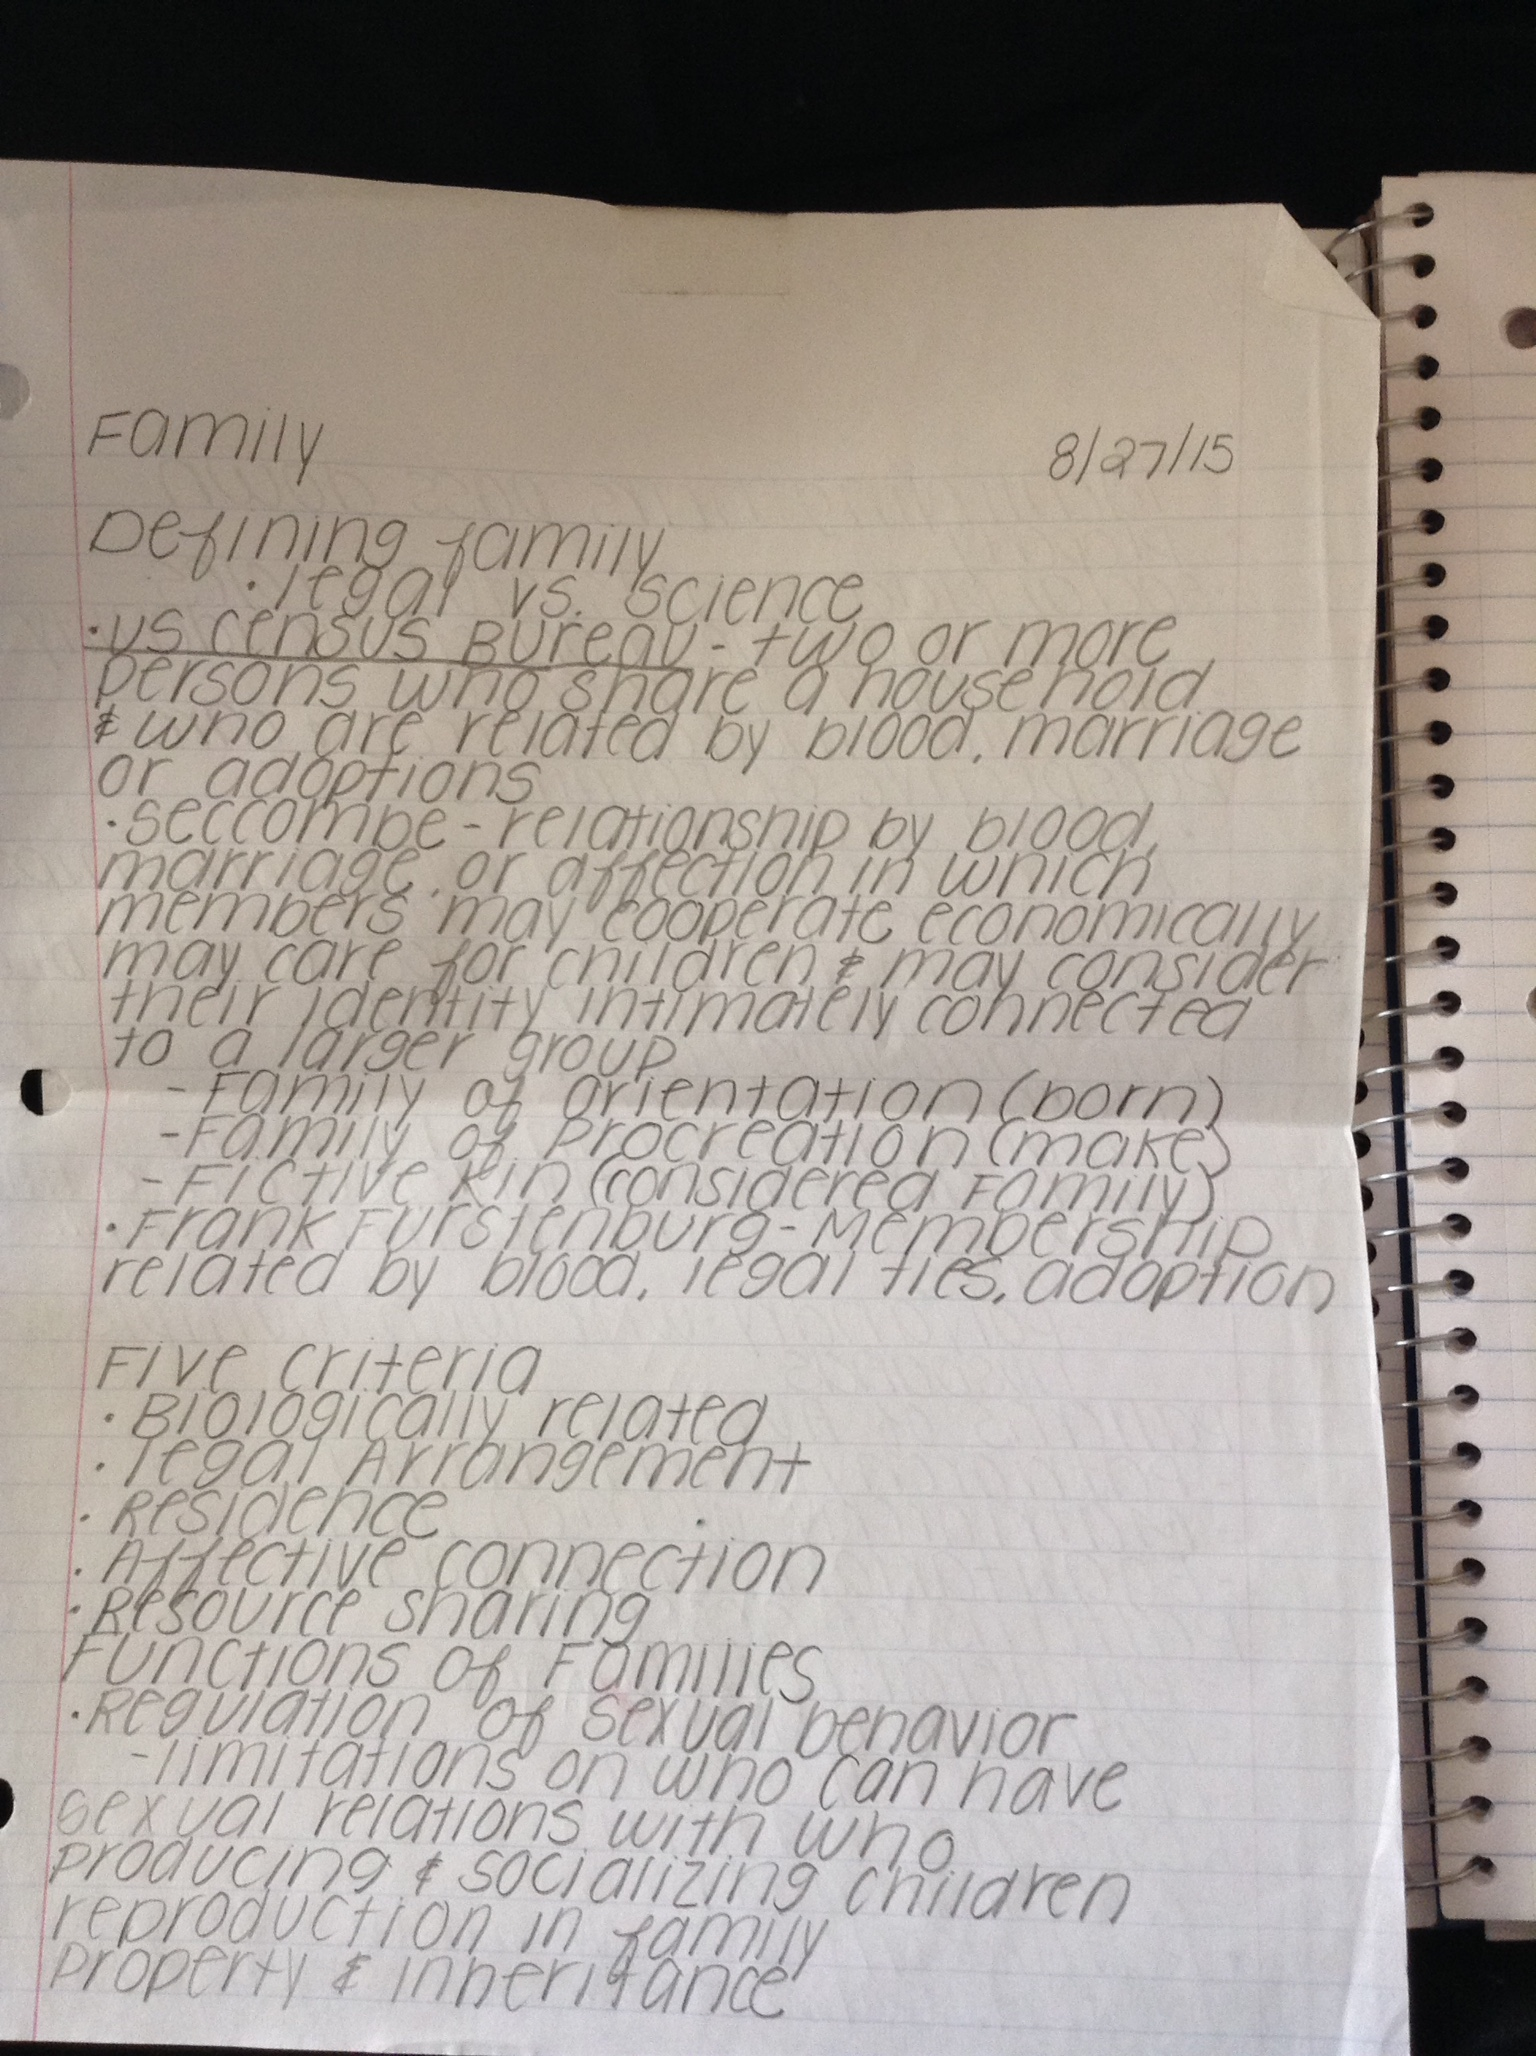 Family 8/27/15
Defining family
· legal vs. science
· US Census Bureau - two or more
persons who share a household
& who are related by blood, marriage
or adoptions
· Seccombe - relationship by blood,
marriage, or affection in which
members may cooperate economically
may care for children & may consider
their identity intimately connected
to a larger group
- Family of orientation (born)
- Family of Procreation (make)
- Fictive Kin (considered Family)
· Frank Furstenburg - Membership
related by blood, legal ties, adoption
Five Criteria
· Biologically related
· legal Arrangement
· Residence
· Affective connection
· Resource sharing
Functions of Families
· Regulation of sexual behavior
- limitations on who can have
sexual relations with who
producing & socializing children
reproduction in family
Property & inheritance